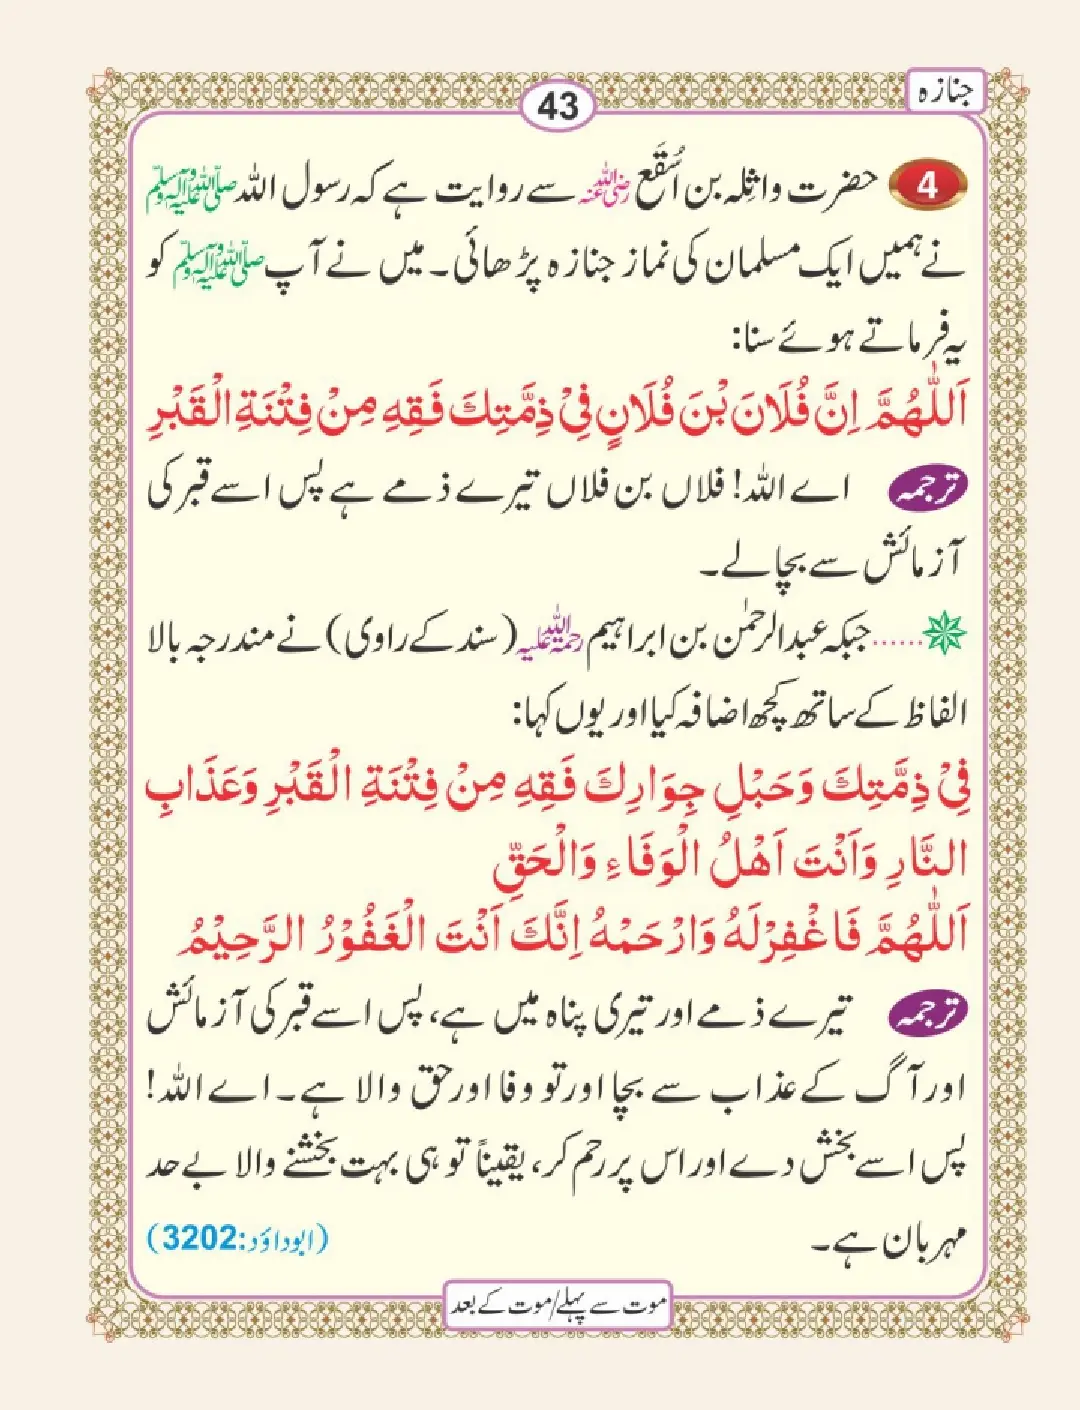 جنازہ
43
4 حضرت واثلہ بن اَسْقَع رضی اللہ عنہ سے روایت ہے کہ رسول اللہ صلی اللہ علیہ وآلہ وسلم
نے ہمیں ایک مسلمان کی نماز جنازہ پڑھائی۔ میں نے آپ صلی اللہ علیہ وآلہ وسلم کو
یہ فرماتے ہوئے سنا:
اَللّٰهُمَّ اِنَّ فُلَانَ بْنَ فُلَانٍ فِيْ ذِمَّتِكَ فَقِهِ مِنْ فِتْنَةِ الْقَبْرِ
ترجمہ اے اللہ! فلاں بن فلاں تیرے ذمے ہے پس اسے قبر کی
آزمائش سے بچالے۔
......جبکہ عبدالرحمٰن بن ابراہیم رحمۃ اللہ علیہ (سند کے راوی) نے مندرجہ بالا
الفاظ کے ساتھ کچھ اضافہ کیا اور یوں کہا:
فِيْ ذِمَّتِكَ وَحَبْلِ جِوَارِكَ فَقِهِ مِنْ فِتْنَةِ الْقَبْرِ وَعَذَابِ
النَّارِ وَاَنْتَ اَهْلُ الْوَفَاءِ وَالْحَقِّ
اَللّٰهُمَّ فَاغْفِرْلَهُ وَارْحَمْهُ اِنَّكَ اَنْتَ الْغَفُوْرُ الرَّحِيْمُ
ترجمہ تیرے ذمے اور تیری پناہ میں ہے، پس اسے قبر کی آزمائش
اور آگ کے عذاب سے بچا اور تو وفا اور حق والا ہے۔ اے اللہ!
پس اسے بخش دے اور اس پر رحم کر، یقیناً تو ہی بہت بخشنے والا بے حد
مہربان ہے۔ (ابوداؤد:3202)
موت سے پہلے/موت کے بعد